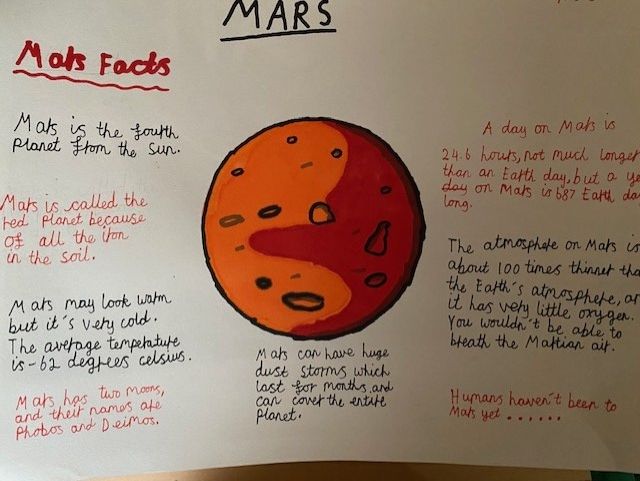 MARS
Mars Facts
Mars is the fourth
Planet from the sun.
Mars is called the
red Planet because
of all the iron
in the soil.
Mars may look warm
but it's very cold.
The average temperature
is -62 degrees celsius.
Mars has two moons,
and their names are
Phobos and Deimos.
Mars can have huge
dust storms which
last for months and
can cover the entire
Planet.
A day on Mars is
24.6 hours, not much longer
than an Earth day, but a
day on Mars is 687 Earth
long.
The atmosphere on Mars is
about 100 times thinner
the Earth's atmosphere,
it has very little oxygen.
You wouldn't be able to
breath the Martian air.
Humans haven't been to
Mars yet ......